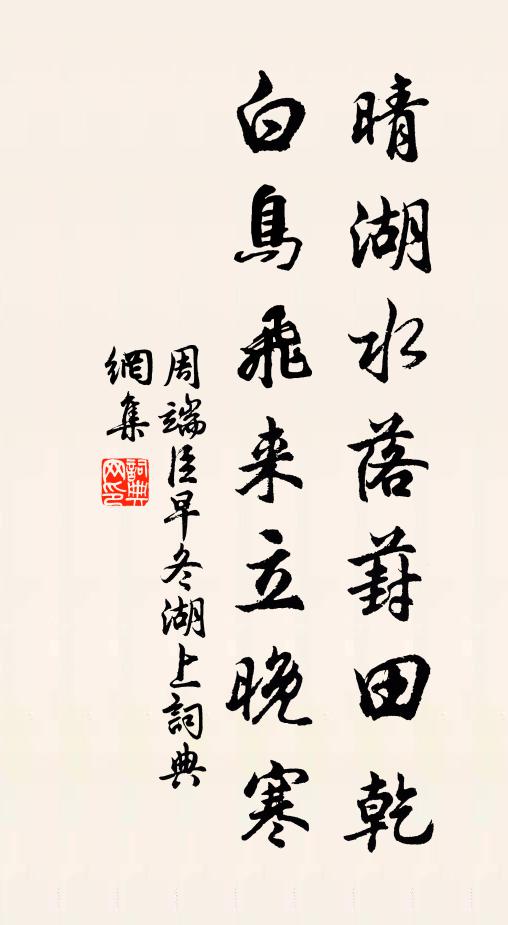 晴湖水落葑田乾
白鳥飛来立晚寒
周端臣早冬湖上詞典
網集
詞典網印